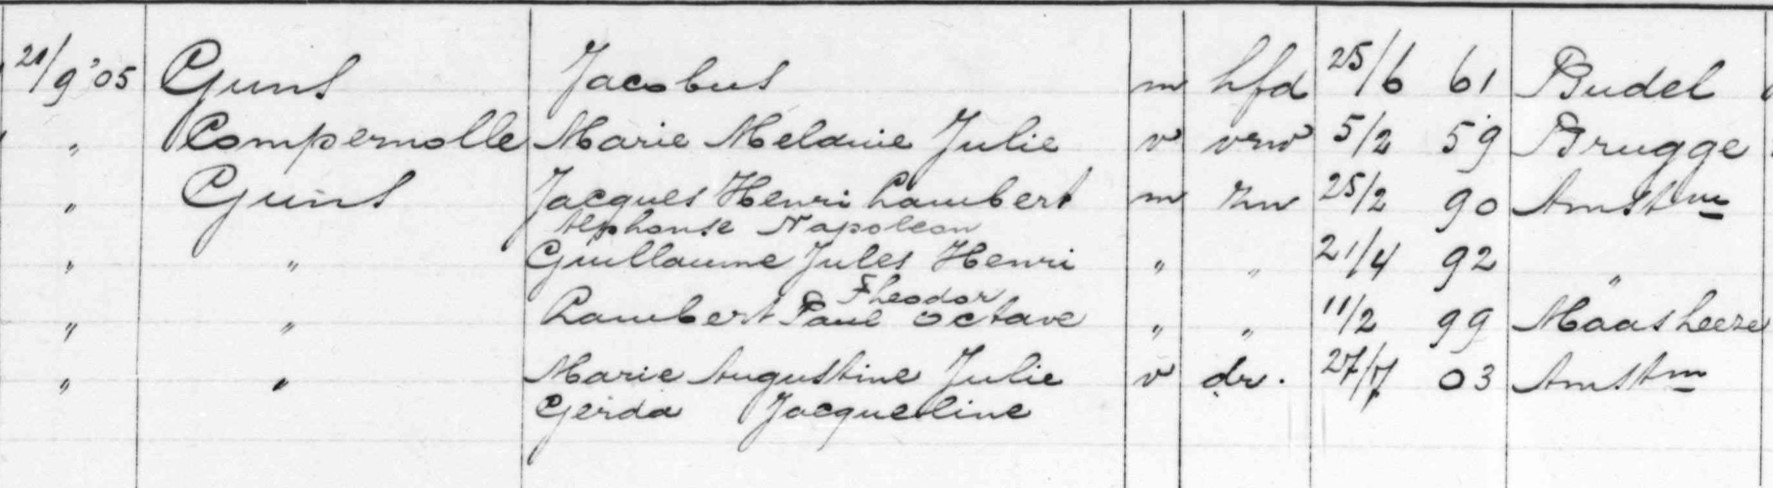 21/9 '05 Guns Jacobus m hfd 25/6 61 Budel
" Compernolle Marie Melanie Julie v vrw 5/2 59 Brugge
" Guns Jacques Henri Lambert m zn 25/2 90 Amstm
Alphonse Napoleon
" " Guillaume Jules Henri " " 21/4 92 "
Theodor
" " Lambert Paul Octave " " 11/2 99 Maasheeze
" " Marie Augustine Julie v dr. 27/7 03 Amstm
Gerda Jacqueline